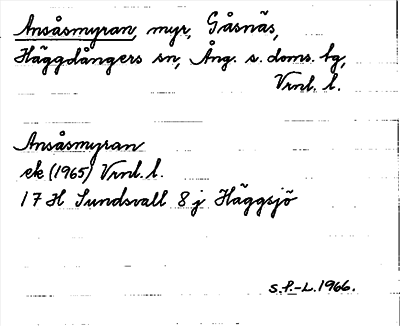 Ansåsmyran, myr, Gåsnäs,
Häggdångers sn, Ång. s. doms. bg,
Vrnl. l.
Ansåsmyran
ek (1965) Vrnl. l.
17 H Sundsvall 8 j Häggsjö
S.f.-L. 1966.